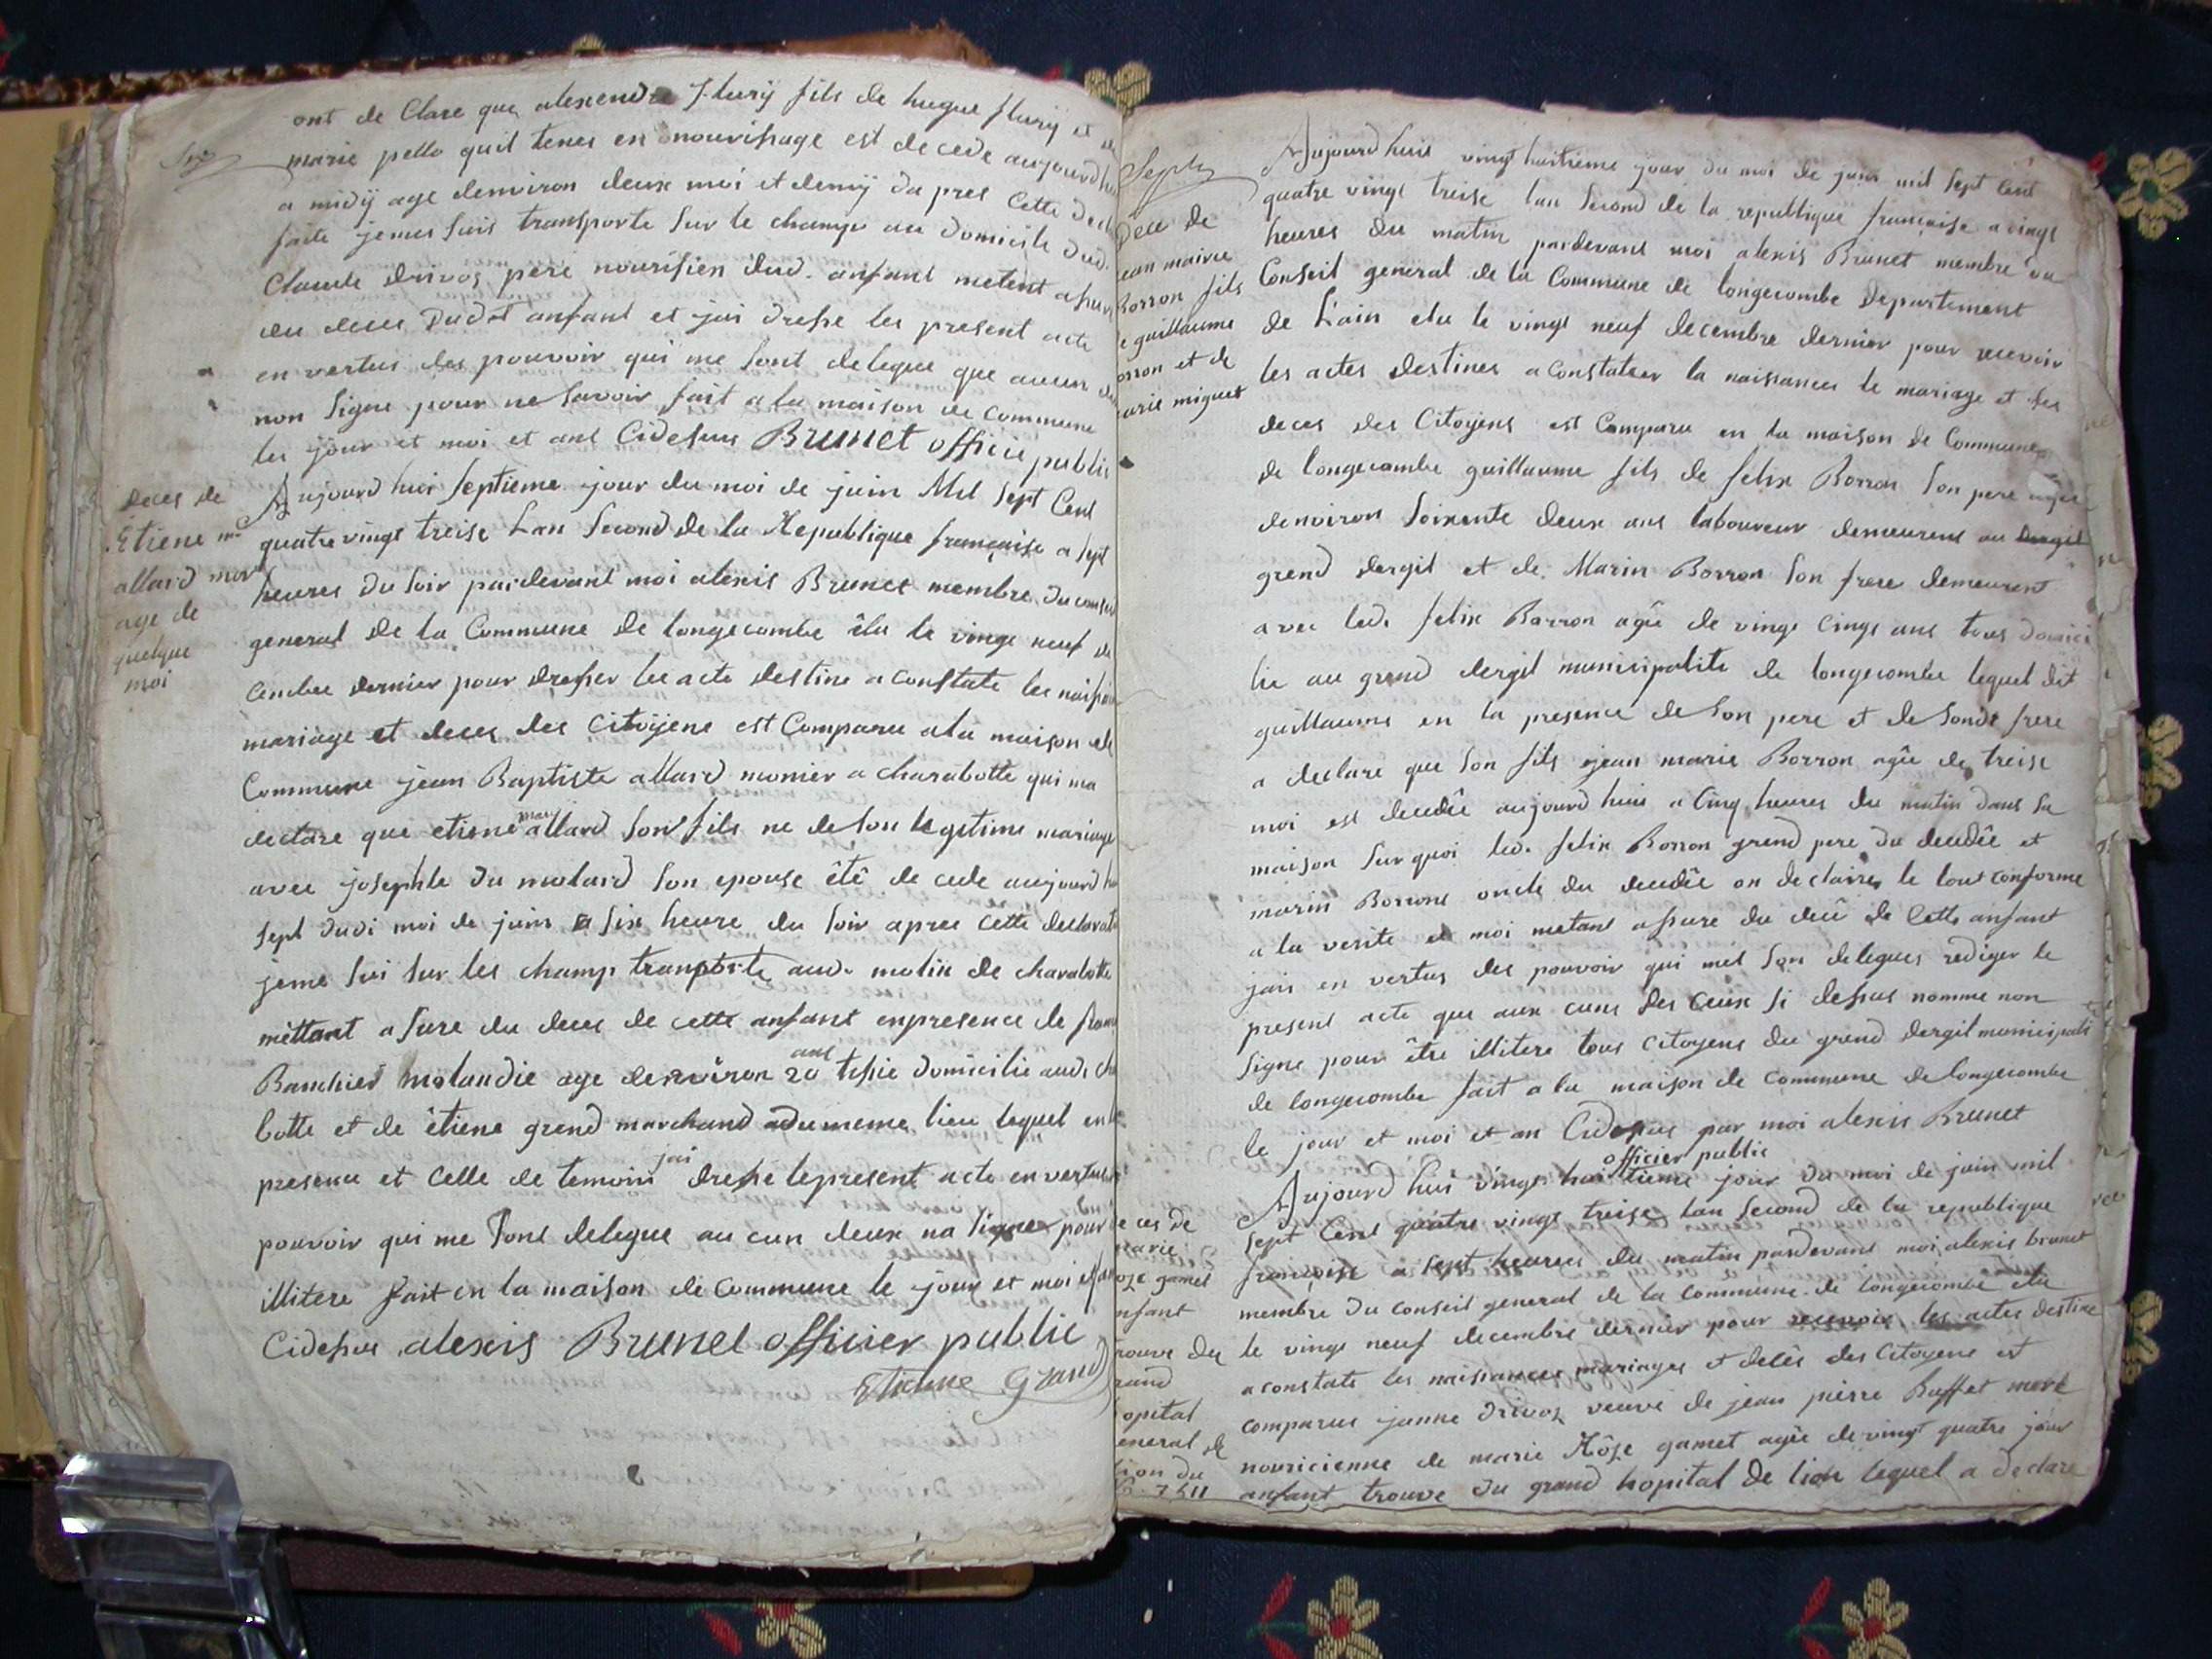 Six
ont de Clare que alexendre flury fils de hugue flury et de
marie pello quil tenes en nourissage est decede aujourdhu
a midÿ age denviron deux moi et demÿ da pres Cette decl
faite jemes suis transporte sur le change au domicile dud.
Claude drivoz pere nourisien dud. anfant metent assur
du deces Dudt anfant et jai dresse les present acte
en vertus des pouvoir qui me sont delegue que aucun
non Signe pour ne savoir fait a la maison de commune
les jour et moi et ans Cidessus Brunet officie public
deces de
Etiene mce
allard mor
age de
quelque
moi
Aujourd huis septieme jour du moi de juin Mil sept Cent
quatre vingt treise Lan Second de la Republique françoise a sept
heures du soir pardevant moi alexis Brunet membre du conseil
general de la Commune de longecombe êlu le vingt neuf de
cembre dernier pour dresser les acte destine a constate les naissan
mariage et deces des citoÿene est Comparu ala maison de
Commune jean Baptiste allard monier a charabotte qui ma
declare que etiene mary allard son fils ne de son legitime mariage
avec josephte du molard son epouse êtê de cede aujourd hu
sept dudi moi de juin a six heure du soir apres cette declarat
jeme sui sur les champ transporte aud. molin de charabotte
mettant a sure du deces de cette anfant enpresence de
Banchier molandie age denviron 20 ans tissie domicilie aud. cha
botte et de êtiene grend marchand adumeme lieu lequel en
presence et celle de temoin jai dresse lepresent acte en vertus
pouvoir qui me sont delegue au cun deux na signer pour
illitere fait en la maison de commune le jour et moi et an
Cidessus alexis Brunet officier public
Etienne Grand
Sept
Dece de
ean mairie
Borron fils
e guillaume
orron et de
arie miguet
Aujourdhuis vingt huitieme jour du moi de juin mil sept Cent
quatre vingt treise lan second de la republique françoise a cinqt
heures du matin pardevant moi alexis Brunet membre du
Conseil general de la Commune de longecombe Departement
de Lain elu le vingt neuf decembre dernier pour recevoir
les actes destines a Constater la naissances le mariage et les
deces des Citoyens est Comparu en la maison de Commune
de longecombe guillaume fils de felix Borron son pere agee
denviron soixente deux ans laboureur demeurent au dergit
grend dergit et de Marin Borron son frere demeurent
avec led. felix Barron agêe de vingt cinqt ans tous domici
lie au grend dergit municipalite de longecombe lequel dit
guillaume en la presence de son pere et de sondt frere
a declare que son fils jean marie Borron agêe de treise
moi est decedêe aujourd huis a Cinq heures du matin dans sa
maison sur quoi led. felix Borron grend pere du decedêe et
marin Borrons oncle du decedêe on declaires le tout conforme
a la verite et moi metant assure du decê de Cette anfant
jais en vertus des pouvoir qui met son delegues rediger le
present acte que aux cuns des ceux si dessus nomme non
signe pour être illitere tous citoyens du grend dergit municipali
de longecombe fait a la maison de commune de longecombe
le jour et moi et an Cidessus par moi alexis Brunet
officier public
e ces de
marie
oze gamet
nfant
trouve du
rand
opital
eneral de
lion du
7511
Aujourd hui vingt huitieme jour du moi de juin mil
sept Cent quatre vingt treise lan second de la republique
françoise a sept heures du matin pardevant moi alexis brunet
membre du conseil general de la commune de longecombe elu
le vingt neuf decembre dernier pour recevoir les actes destine
a constate les naissances mariages et decês des Citoyene est
comparue janne drivoz veuve de jean pierre Buffet mort
nouricienne de marie Rôze gamet agêe de vingt quatre jour
anfant trouve du grand hopital de lion lequel a declare